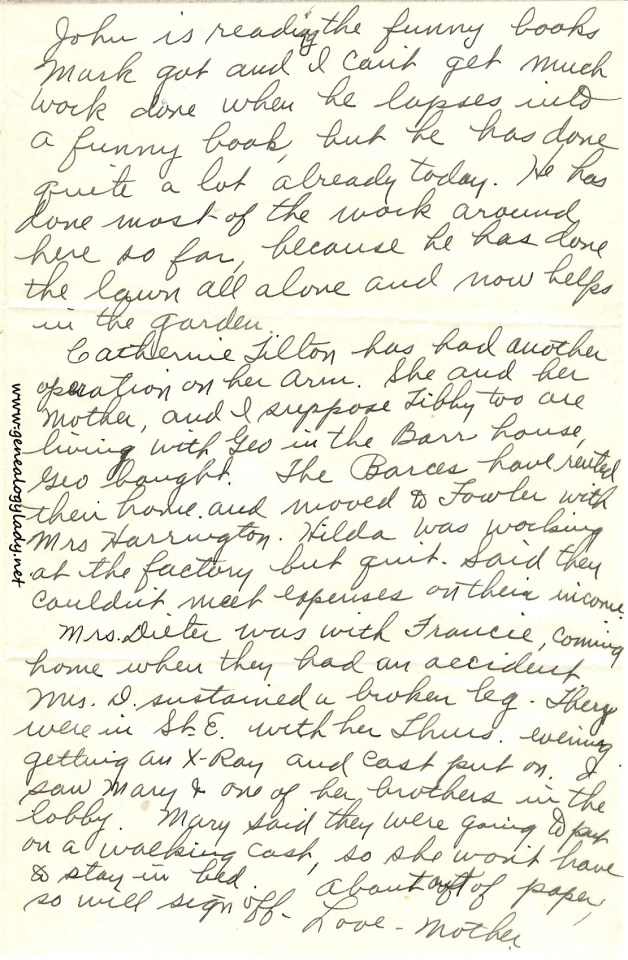 John is reading the funny books
Mark got and I can't get much
work done when he lapses into
a funny book, but he has done
quite a lot already today. He has
done most of the work around
here so far, because he has done
the lawn all alone and now helps
in the garden.
Catherine Tilton has had another
operation on her arm. She and her
mother, and I suppose Libby too are
living with Geo in the Barr house,
Geo bought. The Barces have rented
their home and moved to Fowler with
Mrs Harrington. Hilda was working
at the factory but quit. Said they
couldn't meet expenses on their income.
Mrs. Dieter was with Francie, coming
home when they had an accident
Mrs. D. sustained a broken leg. They
were in St. E. with her Thurs. evening
getting an X-Ray and cast put on. I
saw Mary & one of her brothers in the
lobby. Mary said they were going to put
on a walking cast, so she won't have
to stay in bed. About out of paper,
so will sign off - Love - Mother
www.genealogylady.net